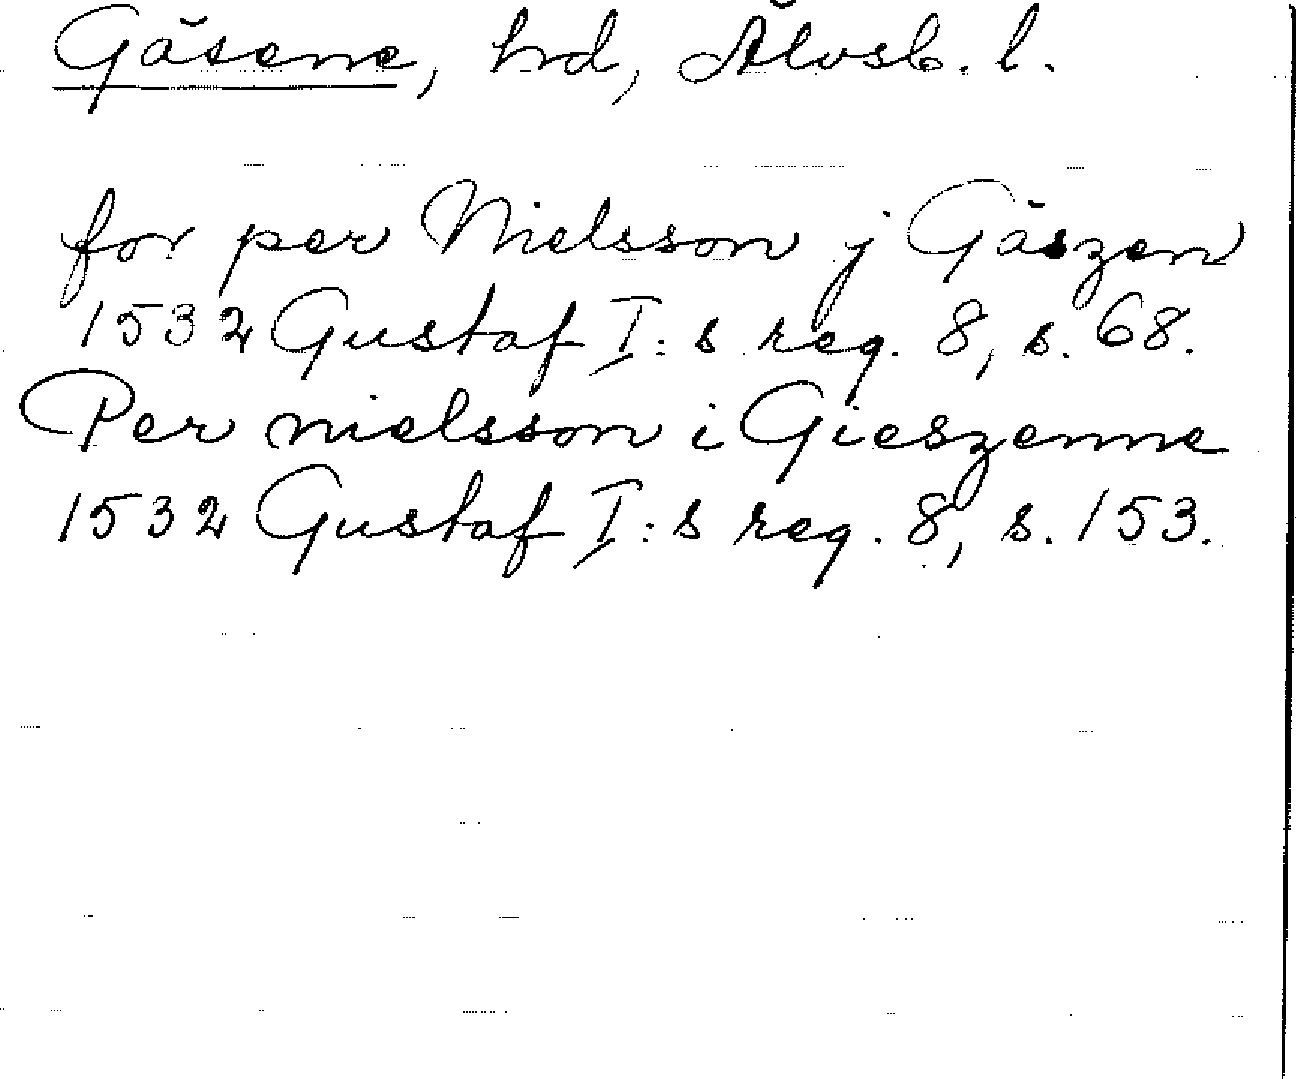 Gäsene, hd, Älvsb. l.
for per Nielsson j Gäszen
1532 Gustaf I:s reg. 8, s. 68.
Per nielsson i Gieszenne
1532 Gustaf I:s reg. 8, s. 153.